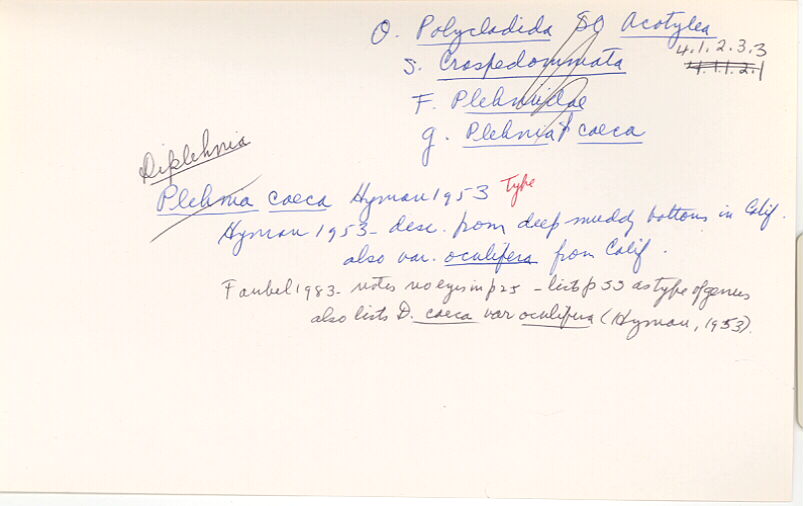 O. Polycladida SO Acotylea
4.1.2.3.3
S. Craspedommata
4.1.1.2.1
F. Plehniidae
g. Plehnia caeca
Diplehnia
Plehnia caeca Hyman 1953 Type
Hyman 1953 - desc. from deep muddy bottoms in Calif.
also var. oculifera from Calif.
Faubel 1983 - notes no eyes in p25 - lists p 53 as type of genus
also lists D. caeca var oculifera (Hyman, 1953).